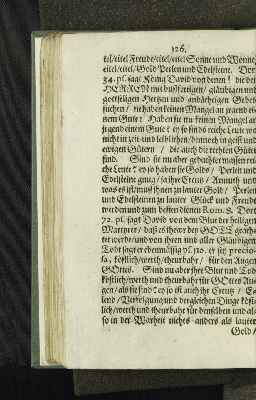 126.
tel/eitel Freude/eitel/eitel Sonne und Wonne/
eitel/eitel/Gold Perlen und Edelsteine. Dort
34. pſ. ſagt König David von denen! die den
HERREN mit bußfertigen/ gläubigen und
gottſeligen Hertzen und andächtigen Gebet
ſuchen/ ſie haben keinen Mangel an jegend ei-
nem Gute: Haben ſie nu keinen Mangel an
jegend einem Gute: ey ſo ſinds reiche Leute wo
nicht in zeit und leiblichen/ dennoch in geiſt und
ewigen Gütern / die auch die rechten Güter
ſind. Sind ſie nu aber gedachter maſſen rei-
che Leute: ey ſo haben ſie Golds/ Perlen und
Edelſteine gnug/ ja ihre Creutz/ Armuth und
was es iſt/ muß ihnen zu lauter Gold/ Perlen
und Edelſteinen zu lauter Glück und Freude
werden und zum beſten dienen Rom. 8. Dort
72. pſ. ſagt David von dem Blut der heiligen
Martyrer/ daß es theur bey GOTT geach-
tet werde/ und von ihren und aller Gläubigen
Todt ſagt er ebenmäßig pſ. 116. er ſey precio-
ſa, köſtlich/werth/theurbahr/ für den Augen
GOttes. Sind nu aber ihr Blut und Tod
köſtlich/werth und theurbahr für GOttes Au-
gen/ als ſie ſind: ey ſo iſt auch ihr Creutz/ E-
lend/ Verfolgung und dergleichen Dinge köſt-
lich/werth und theurbahr für demſelben und al-
ſo in der Warheit nichts anders als lauter
Gold/